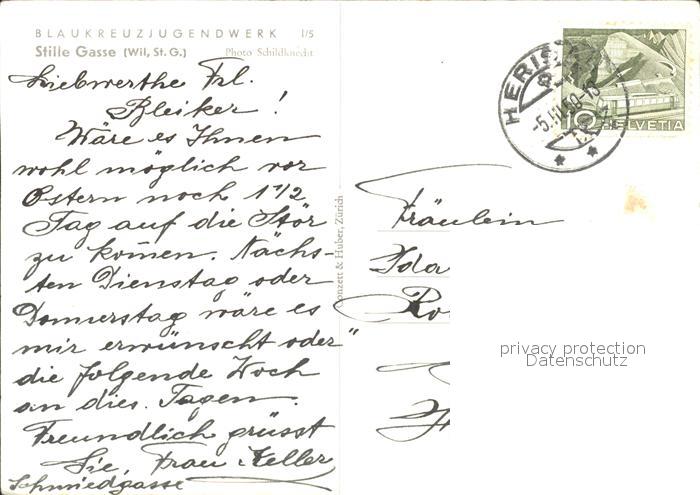 BLAUKREUZJUGENDWERK 1/5
Stille Gasse (Wil, St. G.) Photo Schildknecht
Liebwerthe Frl.
Bleiker!
Wäre es Ihnen
wohl möglich vor
Ostern noch 1 1/2
Tag auf die Stör
zu kom̄en. Nächs-
ten Dienstag oder
Donnerstag wäre es
mir erwünscht oder
die folgende Woch
an dies. Tagen.
Freundlich grüsst
Sie, Frau Keller
Schmiedgasse
Conzett & Huber, Zürich
HERIS
-5.III.50-15
10 HELVETIA
Fräulein
Ida
privacy protection
Datenschutz